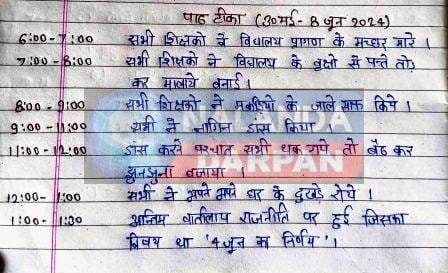 पाठ टीका (30 मई - 8 जून 2024)
6:00-7:00 सभी शिक्षको ने विद्यालय प्रागण के मच्छर मारे ।
7:00 - 8:00 सभी शिक्षको ने विद्यालय के वृक्षो से पत्ते तोड़
कर मालाये बनाई ।
8:00 - 9:00 सभी शिक्षको ने मकड़ियो के जाले साफ किये ।
9:00 - 11:00 सभी ने नागिन डांस किया ।
11:00 - 12:00 डांस करने पश्चात सभी थक गये तो बैठ कर
झुनझुना बजाया ।
12:00 - 1:00 सभी ने अपने अपने घर के दुखड़े रोये ।
1:00 - 1:30 अन्तिम वार्तालाप राजनीति पर हुई जिसका
विषय था '4 जून का निर्णय' ।
NALANDA
DARPAN